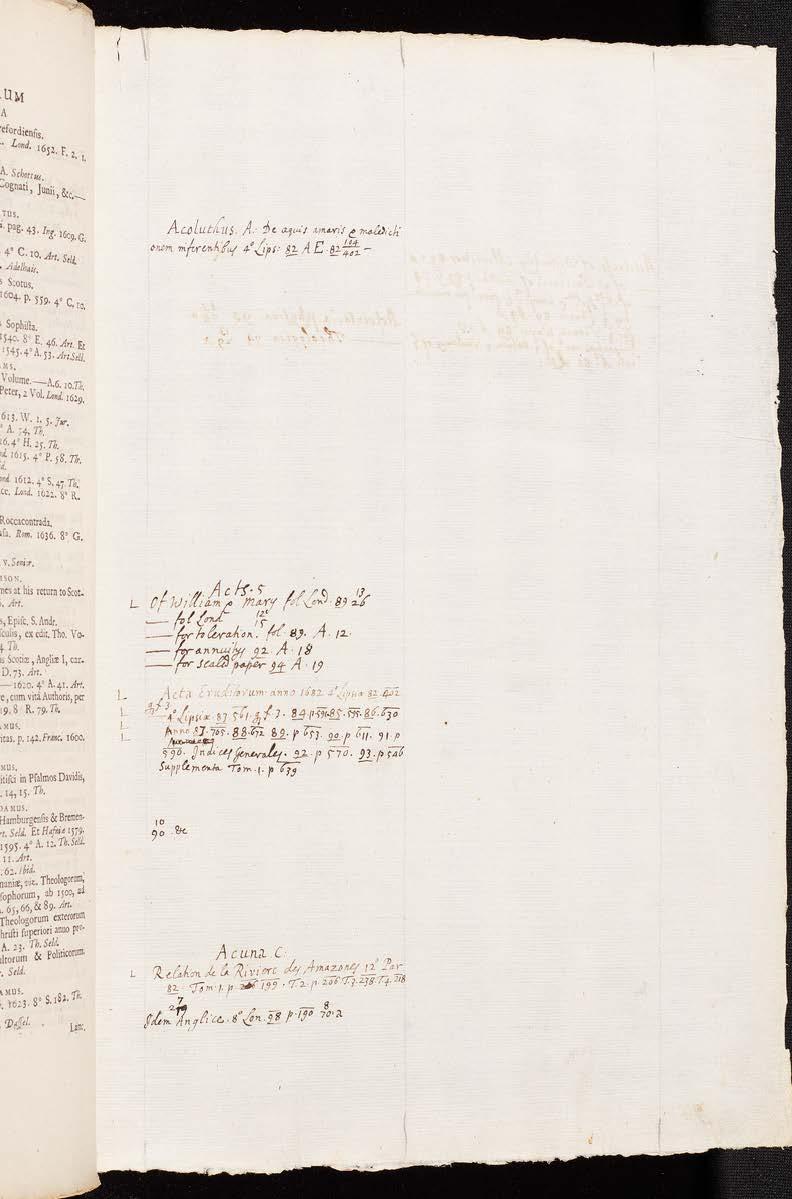 UM
A
efordiensis.
Lond. 1652. F. 2. 1.
A. Schottus.
Cognati, Junii, &c.—
TUS.
. pag. 43. Ing. 1609. G.
4° C. 10. Art. Seld.
Adelhais.
s Scotus.
1604. p. 559. 4° C. 10.
Sophista.
1540. 8° E. 46. Art. Et
1545. 4° A. 53. Art. Seld.
MS.
Volume.—A.6. 10. Th.
Peter, 2 Vol. Lond. 1629.
613. W. 1. 5. Jur.
° A. 74. Th.
16. 4° H. 25. Th.
nd. 1615. 4° P. 58. Th.
d.
ond. 1612. 4° S. 47. Th.
ce. Lond. 1622. 8° R.
Roccacontrada.
sa. Rom. 1636. 8° G.
v. Senix.
ISON.
mes at his return to Scot-
. Art.
s, Episc. S. Andr.
sculus, ex edit. Tho. Vo-
4 Th.
is Scotiæ, Angliæ I, car-
D. 73. Art.
—— 1620. 4° A. 41. Art.
re, cum vitâ Authoris, per
19. 8° R. 79. Th.
AMUS.
itas. p. 142. Franc. 1600.
MUS.
itisci in Psalmos Davidis,
. 14, 15. Th.
DAMUS.
Hamburgensis & Bremen-
rt. Seld. Et Hafniæ 1579.
1595. 4° A. 12. Th. Seld.
11. Art.
. 62. Ibid.
maniæ, viz. Theologorum,
sophorum, ab 1500, ad
. 65, 66, & 89. Art.
Theologorum exterorum
hristi superiori anno pro-
A. 23. Th. Seld.
ultorum & Politicorum.
. Seld.
AMUS.
. 1623. 8° S. 182. Th.
Dassel.
Lanc.
Acoluthus. A. De aquis amaris & maledicti
onem inferentibus 4° Lips: 82 A E. 82 184
402 –
Acts. 5
L Of William & Mary fol Lond. 89 13 26
— fol Lond 12° 15
— for toleration. fol. 89. A. 12.
— for annuitys 92. A. 18
— for scaled paper 94 A. 19
L Acta Eruditorum anno 1682 4° Lipsiæ 82. 402
L 4° Lipsiæ. 83 561. 84 p 591 85. 555. 86. 630
L Anno 87. 705. 88. 672 89. p 653. 90. p 611. 91. p
L 590. Indices Generales. 92. p 570. 93. p 546
Supplementa Tom. 1. p 639
10
90 &c
Acuna C.
L Relation de la Riviere des Amazones 12° Par
82. Tom. 1. p. 199. T. 2. p. 206 T. 3. 238. T. 4. 218
7
Idem Anglice. 8° Lon. 98 p. 190 8 70. a